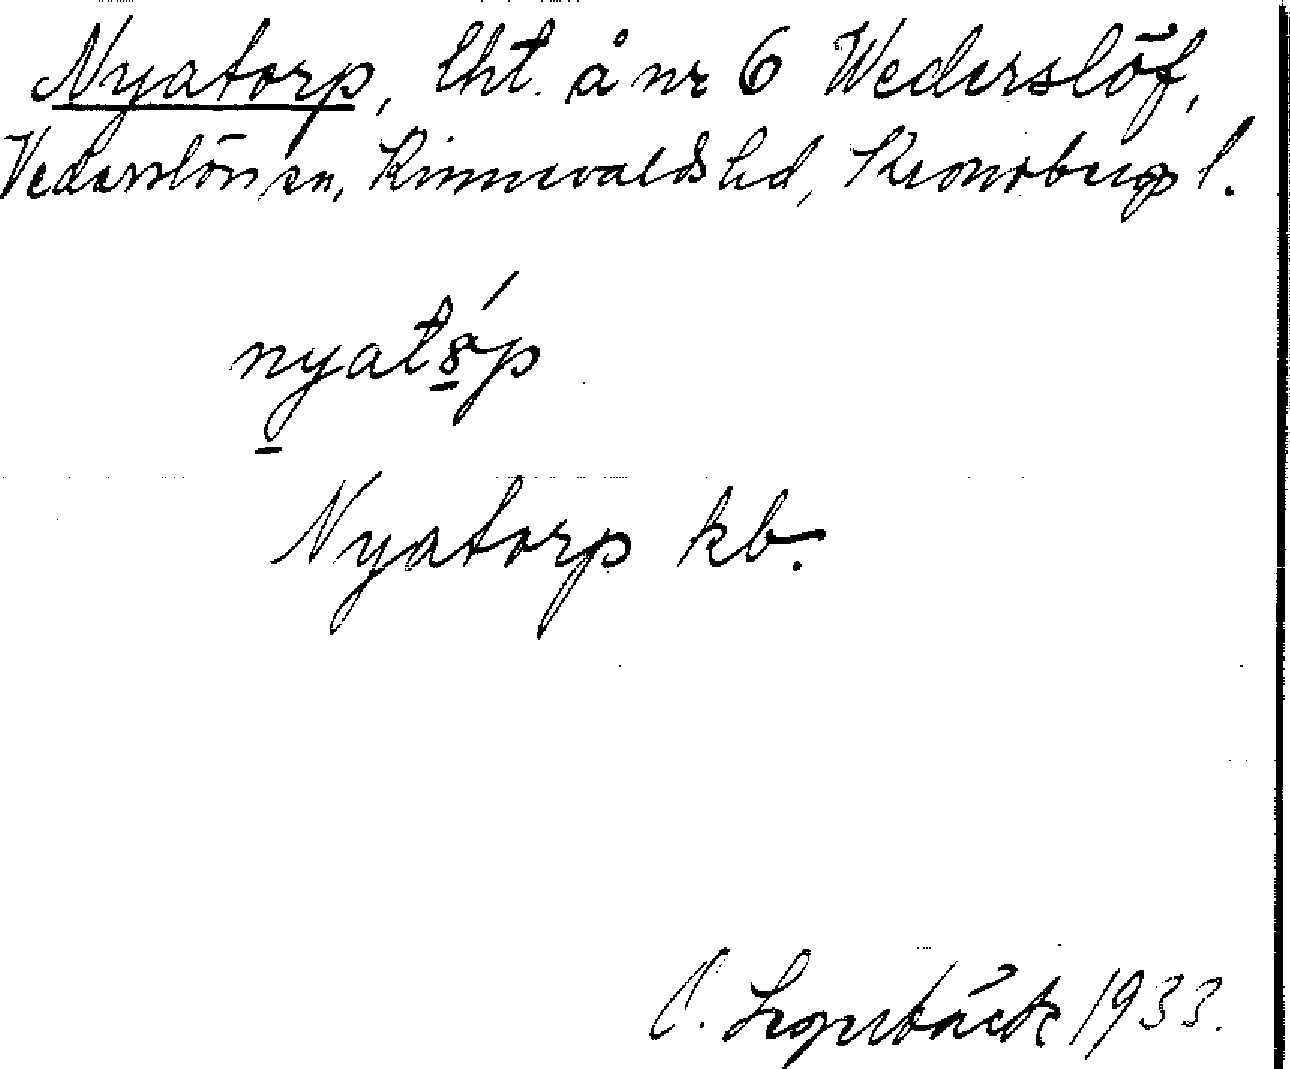 Nyatorp, lht. å nr 6 Wederslöf,
Vederslövs sn, Kinnevalds hd, Kronobergs l.
Nyatorp kb.
1933.